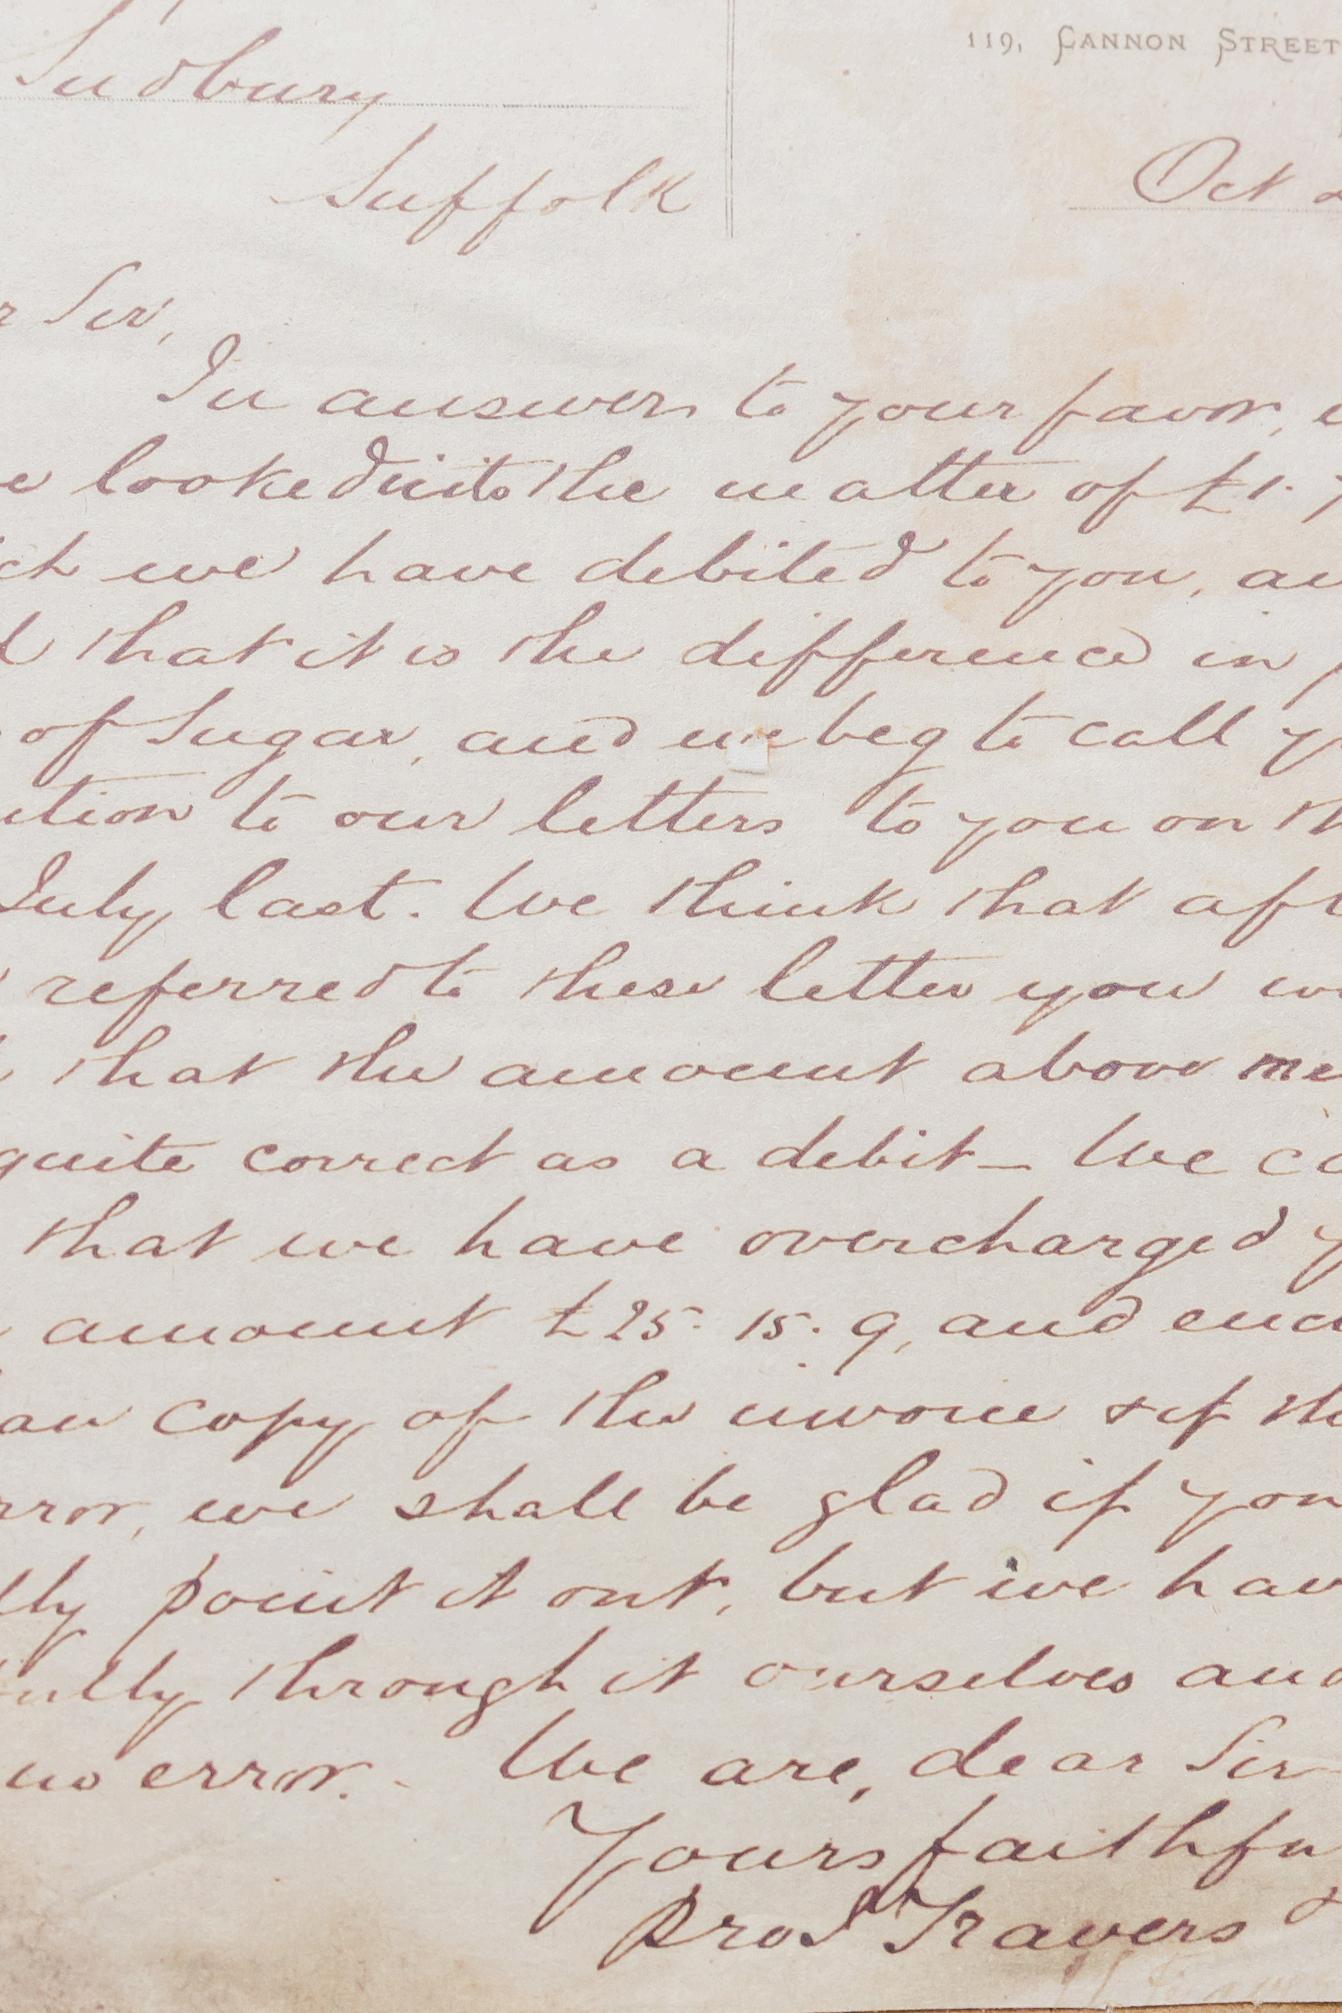 119, CANNON STREET
Sudbury
Suffolk
Oct 2
r Sir,
In answer to your favor,
e looked into the matter of £1. 7
ich we have debited to you, an
d that it is the difference in p
of Sugar, and we beg to call y
ntion to our letters to you on th
July last. We think that aft
referred to these letter you wi
that the amount above me
quite correct as a debit_ We ca
that we have overcharged y
amount £25. 15. 9, and enc
an copy of the invoice & if the
rror, we shall be glad if you
dly point it out, but we hav
fully through it ourselves and
no error. We are, dear Sir
Yours faithfu
Travers &